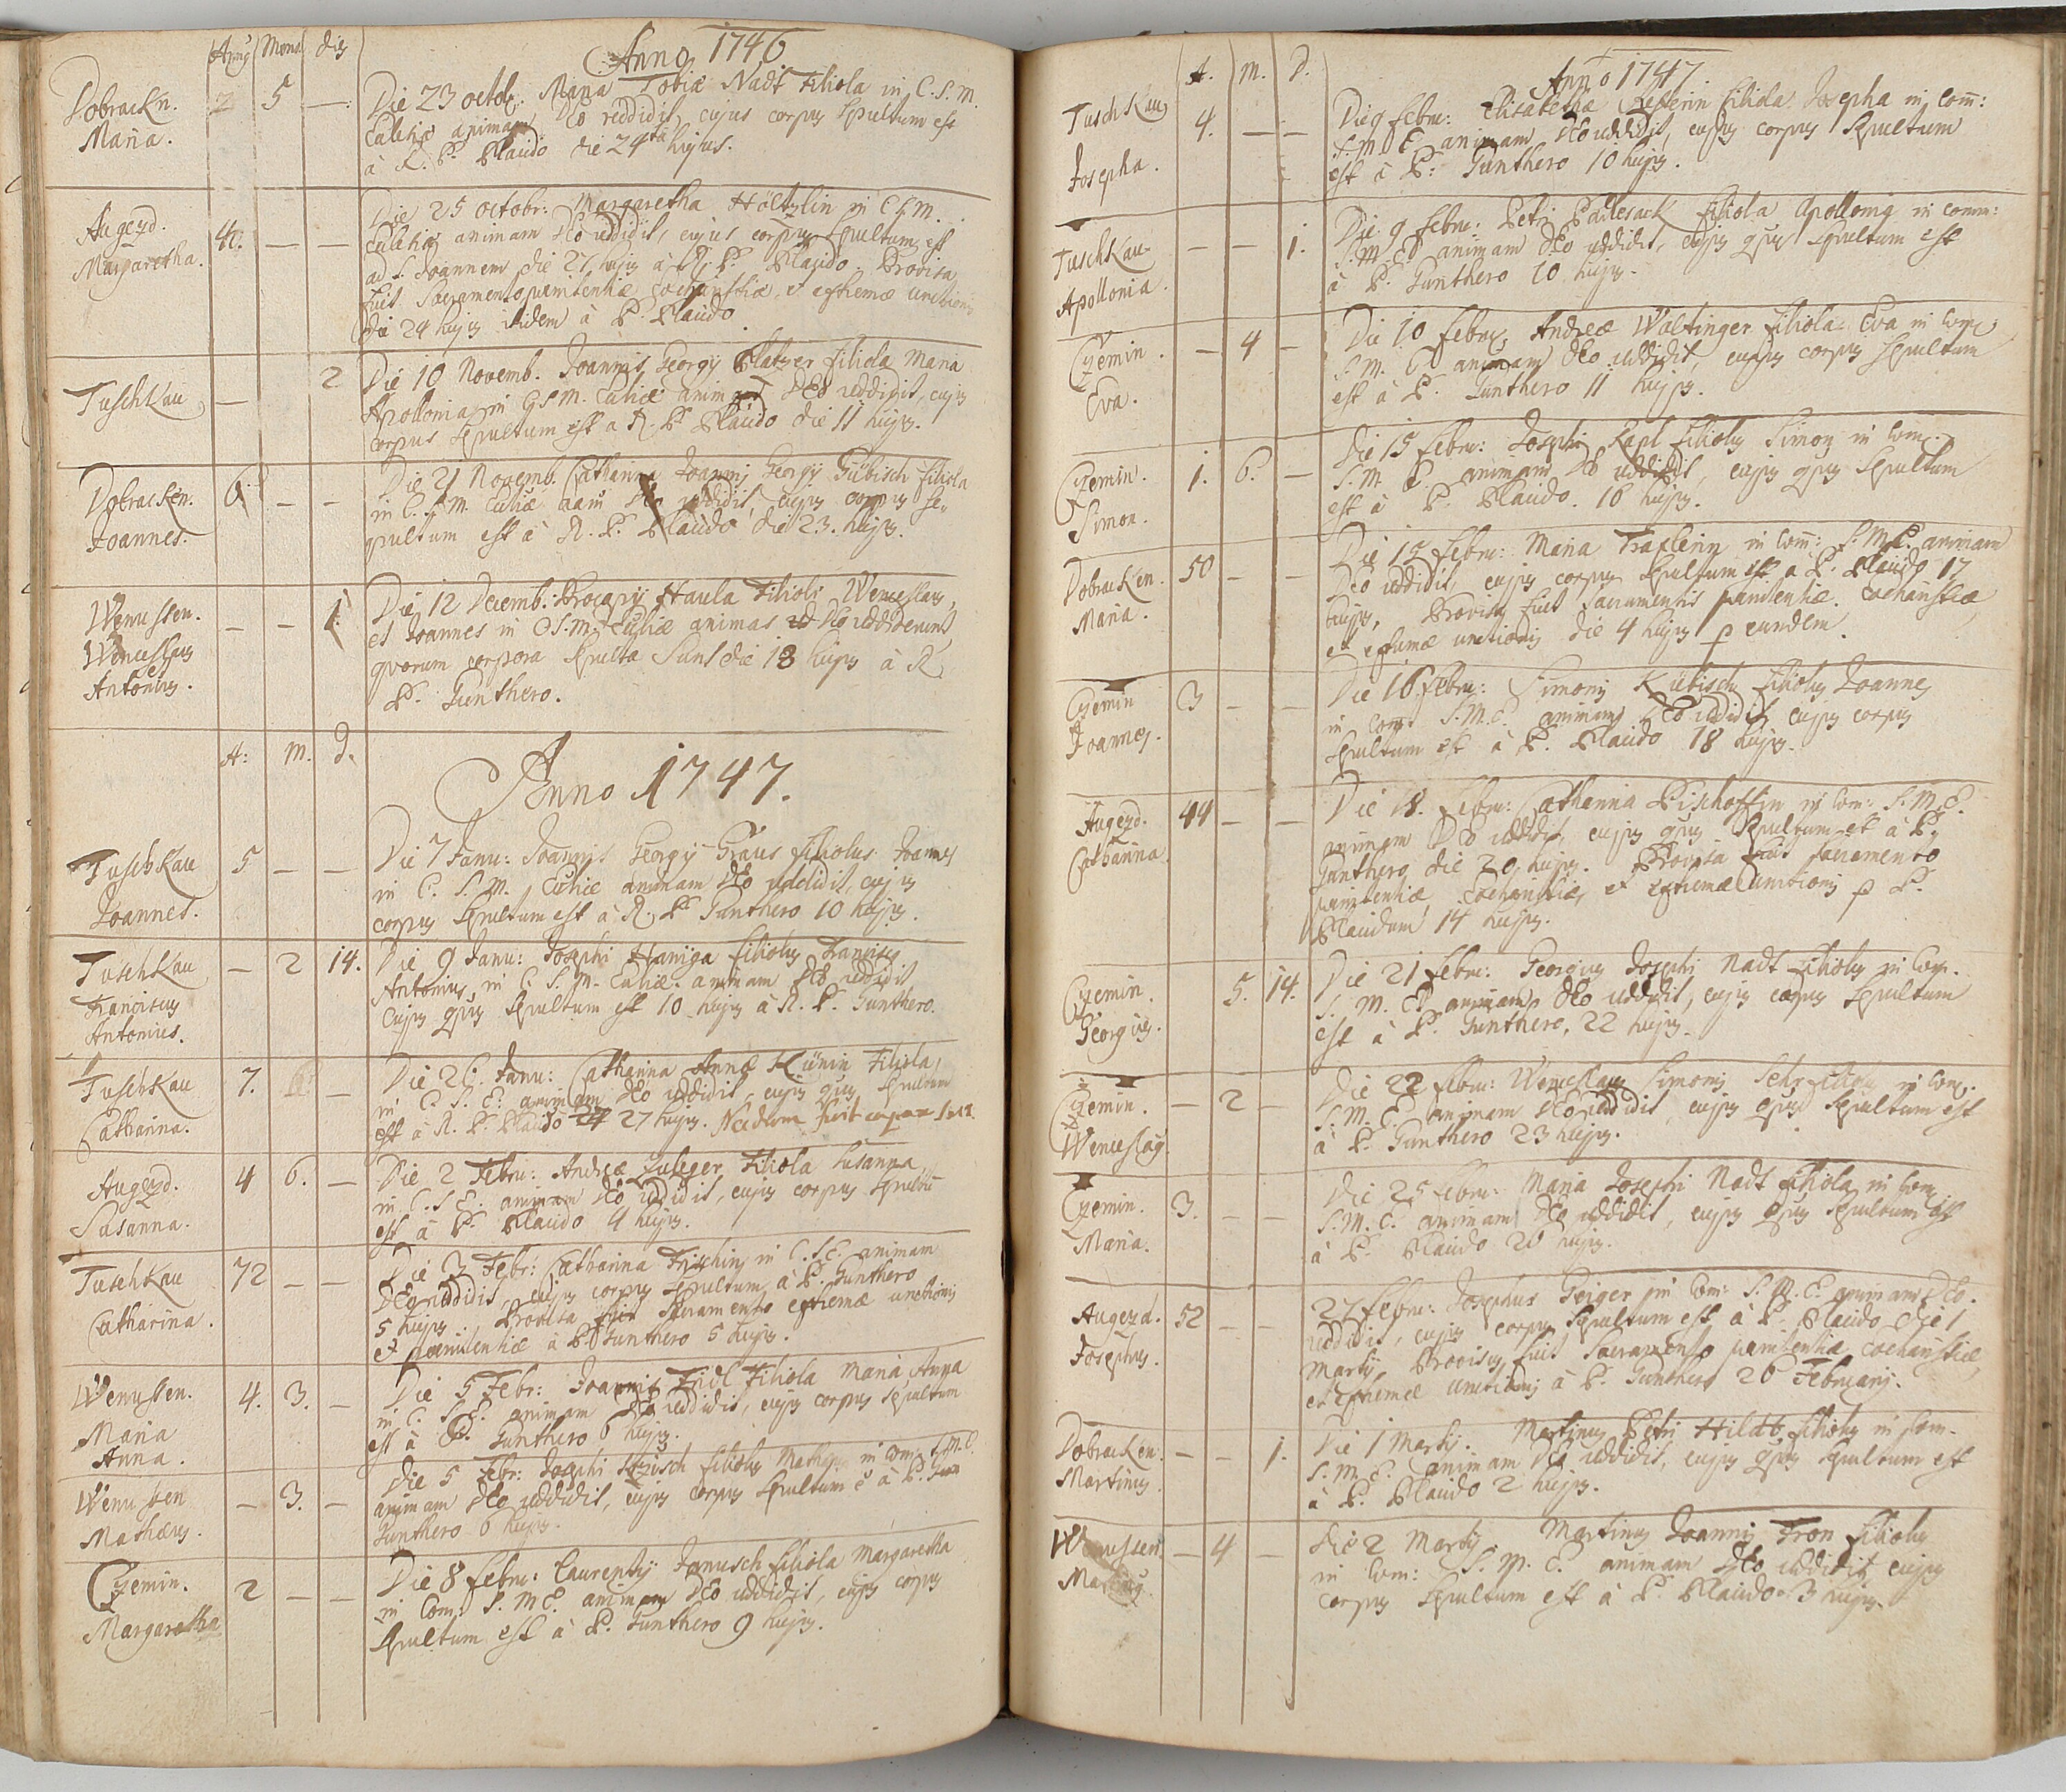 Anno 1746
Annj Mens. dies
Dobrackn. 2 5 — Die 23 octob. Maria Tobiæ Nadt Filiola in C. S. M.
Maria. Ecclesiæ animam Deo reddidit, cujus corpus sepultum est
à R. P. Placido die 24ta hujus.
Augezd. 42. — — Die 25 octobr: Margaretha Höltzlin in C S M.
Margaretha. Ecclesiæ animam Deo reddidit, cujus corpus sepultum est
ad S. Joannem die 27 hujus à R. P. Placido. Provisa
fuit Sacramento pœnitentiæ Eucharistiæ, et extremæ unctionis
die 24 hujus ibidem à P. Placido
Tuschkau — 2 Die 10 Novemb. Joannis Georgij Platzer filiola Maria
Apollonia in C S M. Ecclesiæ animam Deo reddidit, cujus
corpus sepultum est a R. P. Placido die 11 hujus.
Dobracken. 6. — — Die 21 Novemb. Catharina Joannis Georgij Gubisch filiola
Joannes. in C. S. M. Ecclesiæ aam Deo reddidit, cujus corpus se-
pultum est à R. P. Placido die 23. hujus.
Wenussen. — — 1. Die 12 Decemb: Procopij Haula Filioli Wenceslaus,
Wenceslaus et Joannes in C S. M. Ecclesiæ animas Deo reddiderunt,
et quorum corpora sepulta sunt die 13 hujus à R.
Antonius. P. Gunthero.
A: M. D.
Anno 1747.
Tuschkau 5 — — Die 7 Janu: Joannis Georgij Graus filiolus Joannes
Joannes. in C. S. M. Ecclesiæ animam Deo reddidit, cujus
corpus sepultum est à R. P. Gunthero 10 hujus.
Tuschkau — 2 14. Die 9 Janu: Josephi Haniga filiolus Franciscus
Franciscus Antonius in C. S. M. Ecclesiæ animam Deo reddidit
Antonius. cujus cpus sepultum est 10 hujus à R. P. Gunthero.
Tuschkau 7. — Die 26. Janu: Catharina Annæ Künin Filiola,
Catharina. in C. S. E. animam Deo reddidit, cujus cpus sepultum
est à R. P. Placido 27 hujus. Nedum fuit capax
Augezd. 4 6. — Die 2 Febru: Andreæ Zuleger Filiola Susanna,
Susanna. in C. S E. animam Deo reddidit, cujus corpus sepultū
est à P. Placido 4 hujus.
Tuschkau 72 — — Die 3 Febr: Catharina Frischin in C. S. E. animam
Catharina. Deo reddidit, cujus corpus sepultum à P. Gunthero
5 hujus. Provisa fuit Sacramento extremæ unctionis
et pœnitentiæ à P. Gunthero 5 hujus.
Wenussen. 4. 3. — Die 5 Febr: Joannis Fidl Filiola Maria Anna
Maria in C. S. E. animam Deo reddidit, cujus corpus sepultum
Anna. est à P. Gunthero 6 hujus.
Wenussen — 3. — Die 5 Febr: Josephi filiolus Mathæus in Com: S. M. E.
Mathæus. animam Deo reddidit, cujus corpus sepultum ē à P. Gun
Gunthero 6 hujus.
Czemin. 2 — — Die 8 Febru: Laurentij Janusch filiola Margaretha
Margaretha in Com: S. M E. animam Deo reddidit, cujus corpus
sepultum est à P. Gunthero 9 hujus.
A. M. D. Anno 1747.
Tuschkau 4. — — Die 9 Febru: Elisabethæ filiola Josepha in Com:
Josepha. S. M. E. animam Deo reddidit, cujus corpus sepultum
est à P. Gunthero 10 hujus.
Tuschkau — — 1. Die 9 Febru: Petri Padlesack filiola Apollonia in Comm:
Apollonia. S. M E animam Deo reddidit, cujus cpus sepultum est
à P. Gunthero 10 hujus.
Czemin. — 4 — Die 10 Febru: Andreæ Waltinger filiola Eva in Com
Eva. S. M. E animam Deo reddidit, cujus corpus sepultum
est à P. Gunthero 11 hujus.
Czemin. 1. 6. — Die 15 Febru: Josephi Kapl filiolus Simon in Com.
Simon. S. M. E. animam Deo reddidit, cujus cpus sepultum
est à P. Placido. 16 hujus.
Dobracken. 50 — — Die 15 Febru: Maria Traxlerin in Com: S. M. E. animam
Maria. Deo reddidit, cujus corpus sepultum est a P. Placido 17
hujus, Provisa fuit Sacramentis pœnitentiæ. Eucharistiæ
et extremæ unctionis die 4 hujus p eundem.
Czemin 3 — — Die 16 Febru: Simonis Kubisch filiolus Joannes
Joannes. in Com S. M. E. animam Deo reddidit cujus corpus
sepultum est à P. Placido 18 hujus.
Augezd. 44 — — Die 18. Febru: Catharina Pischoffin in Com: S. M. E.
Catharina animam Deo reddidit, cujus cpus sepultum est à P.
Gunthero die 20 hujus. Provisa fuit Sacramento
pœnitentiæ Eucharistiæ, et extremæ unctionis p P.
Placidum 14 hujus.
Czemin. 5. 14. Die 21 Febru: Georgius Josephi Nadt filiolus in Com.
Georgius. S. M. E. animam Deo reddidit, cujus corpus sepultum
est à P. Gunthero, 22 hujus.
Czemin. — 2 — Die 22 Febru: Wenceslaus Simonis Sehr filiolus in Com.
Wenceslaus S. M. E. animam Deo reddidit, cujus cpus sepultum est
à P. Gunthero 23 hujus.
Czemin. 3. — — Die 25 Febru: Maria Josephi Nadt filiola in Com
Maria. S. M. E. animam Deo reddidit, cujus cpus sepultum est
à P. Placido 26 hujus.
Augezd. 52 — — 27 Febru: Josephus Geiger in Com: S. M. E. animam Deo.
Josephus. reddidit, cujus corpus sepultum est à P. Placido die 1
Martij, Provisus fuit Sacramento pœnitentiæ Eucharistiæ
et extremæ unctionis à P. Gunthero 26 Februarij.
Dobracken. — — 1. Die 1 Martij. Martinus Petri Hildt filiolus in Com.
Martinus S. M. E. animam Deo reddidit, cujus cpus sepultum est
à P. Placido 2 hujus.
Wenussen — 4 — Die 2 Martij Martinus Joannis Fron filiolus
Martinus. in Com: S. M. E. animam Deo reddidit cujus
corpus sepultum est à P. Placido 3 hujus.